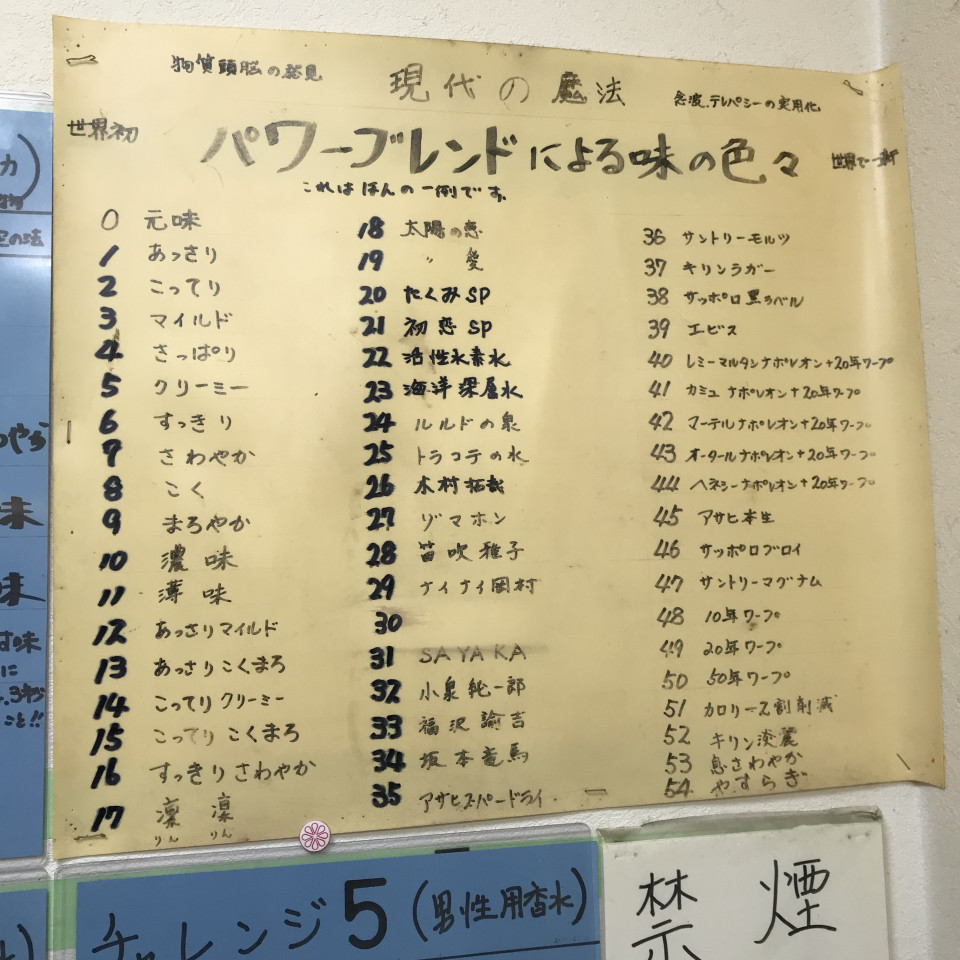 物質頭脳の発見
現代の魔法
念波、テレパシーの実用化
世界初
パワーブレンドによる味の色々
世界で一軒
これはほんの一例です。
0 元味
1 あっさり
2 こってり
3 マイルド
4 さっぱり
5 クリーミー
6 すっきり
7 さわやか
8 こく
9 まろやか
10 濃味
11 薄味
12 あっさりマイルド
13 あっさりこくまろ
14 こってりクリーミー
15 こってりこくまろ
16 すっきりさわやか
17 凛 凛
りん りん
18 太陽の恋
19 〃 愛
20 たくみSP
21 初恋SP
22 活性水素水
23 海洋深層水
24 ルルドの泉
25 トラコテの水
26 木村拓哉
27 ゾマホン
28 笛吹雅子
29 ナイナイ岡村
30
31 SAYAKA
32 小泉純一郎
33 福沢諭吉
34 坂本竜馬
35 アサヒスーパードライ
36 サントリーモルツ
37 キリンラガー
38 サッポロ黒ラベル
39 エビス
40 レミーマルタンナポレオン+20年ワープ
41 カミュナポレオン+20年ワープ
42 マーテルナポレオン+20年ワープ
43 オータールナポレオン+20年ワープ
44 ヘネシーナポレオン+20年ワープ
45 アサヒ本生
46 サッポロブロイ
47 サントリーマグナム
48 10年ワープ
49 20年ワープ
50 50年ワープ
51 カロリー2割削減
52 キリン淡麗
53 息さわやか
54 やすらぎ
チャレンジ5(男性用香水)
禁煙